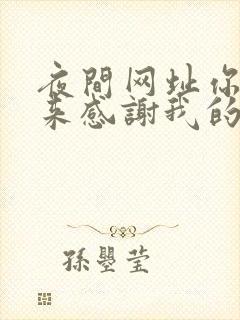 夜間网址你
来感謝我的
孫瞾莹